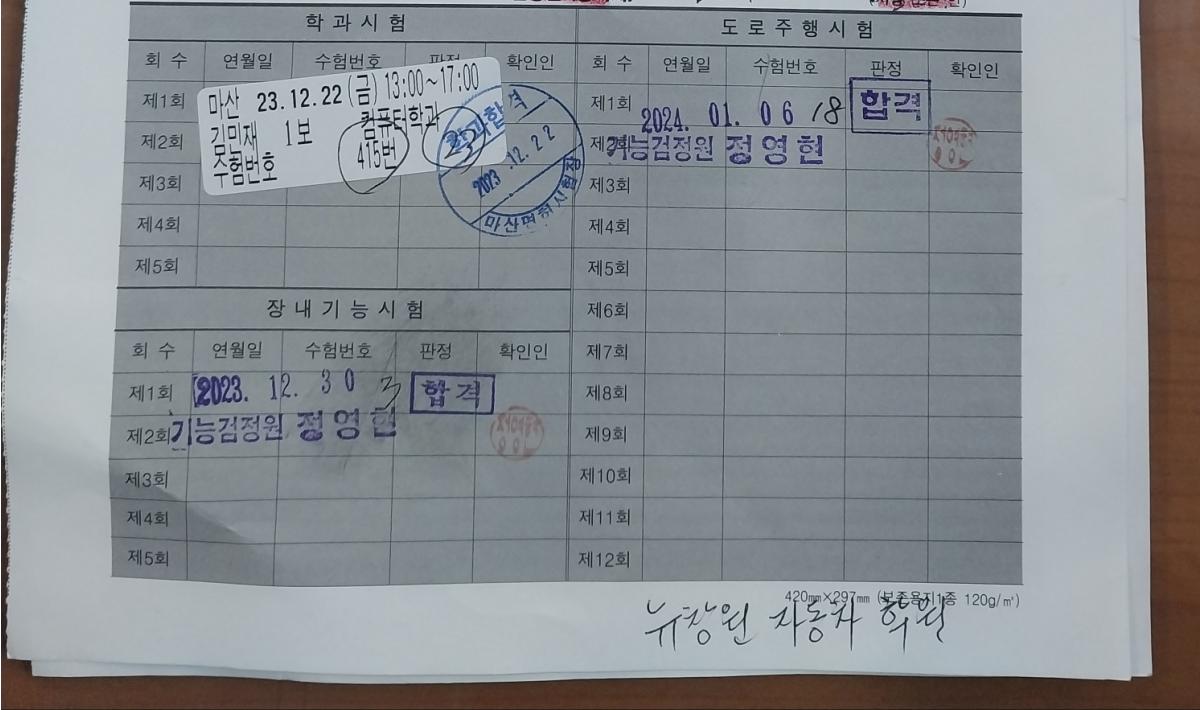 학 과 시 험
회 수 연월일 수험번호 판정 확인인
제1회
제2회
제3회
제4회
제5회
마산 23.12.22 (금) 13:00~17:00
김민재 1보 컴퓨터학과
수험번호 415번
학과합격
2023. 12. 22
마산면허시험장
장 내 기 능 시 험
회 수 연월일 수험번호 판정 확인인
제1회 2023. 12. 30 3 합격
제2회 기능검정원 정영헌
제3회
제4회
제5회
도 로 주 행 시 험
회 수 연월일 수험번호 판정 확인인
제1회 2024. 01. 06 18 합격
제2회 기능검정원 정영헌
제3회
제4회
제5회
제6회
제7회
제8회
제9회
제10회
제11회
제12회
420㎜×297㎜ (보존용지1종 120g/㎡)
뉴창원 자동차 학원